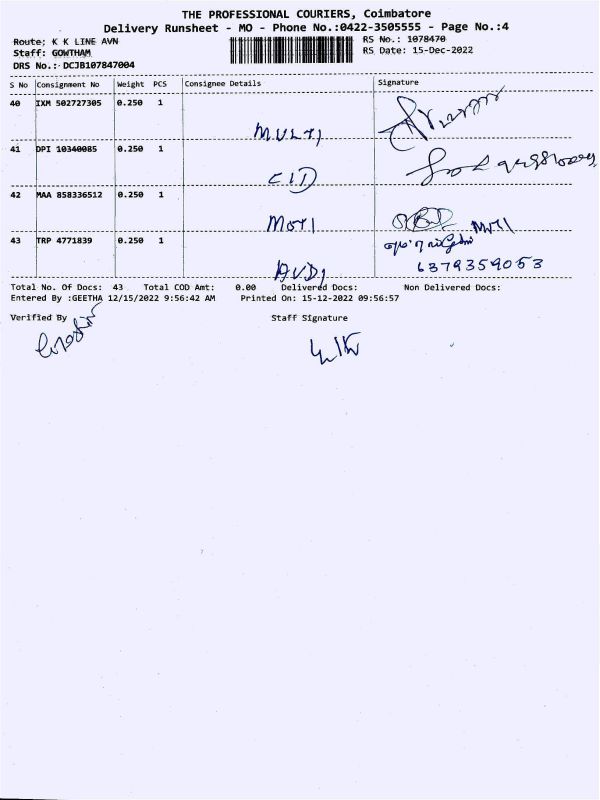 THE PROFESSIONAL COURIERS, Coimbatore
Delivery Runsheet - MO - Phone No.:0422-3505555 - Page No.:4
Route: K K LINE AVN
RS No.: 1078470
Staff: GOWTHAM
RS Date: 15-Dec-2022
DRS No.: DCJB107847004
S No Consignment No Weight PCS Consignee Details Signature
40 IXM 502727305 0.250 1
MULTI
41 DPI 10340085 0.250 1
CID
42 MAA 858336512 0.250 1
MOTI
43 TRP 4771839 0.250 1
6379359053
AVDI
Total No. Of Docs: 43 Total COD Amt: 0.00 Delivered Docs: Non Delivered Docs:
Entered By :GEETHA 12/15/2022 9:56:42 AM Printed On: 15-12-2022 09:56:57
Verified By Staff Signature